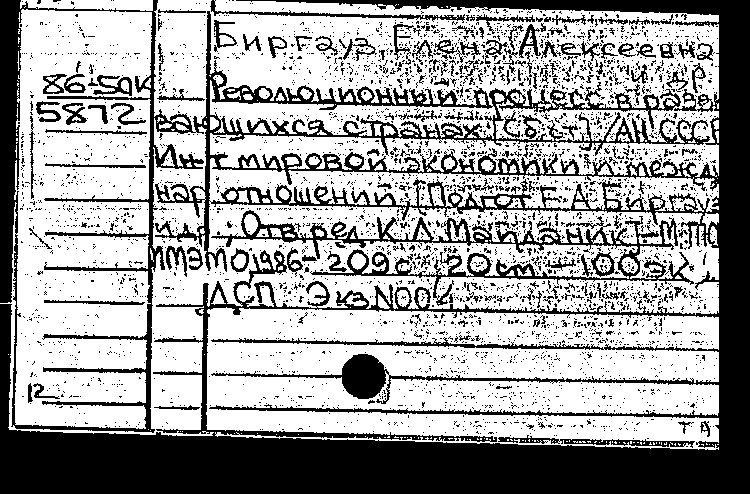 Биргауз, Елена Алексеевна
и др.
86-50К
5872
Революционный процесс в разви
вающихся странах [Сб. ст.] / АН СССР
Ин-т мировой экономики и межд
нар отношений; [Подгот Е.А. Биргауз
и др.; Отв. ред. К. Л. Майданик] - М:
ИМЭМО, 1986. - 209 с, 20 см. - 100 эк
ДСП. Экз N004.
12